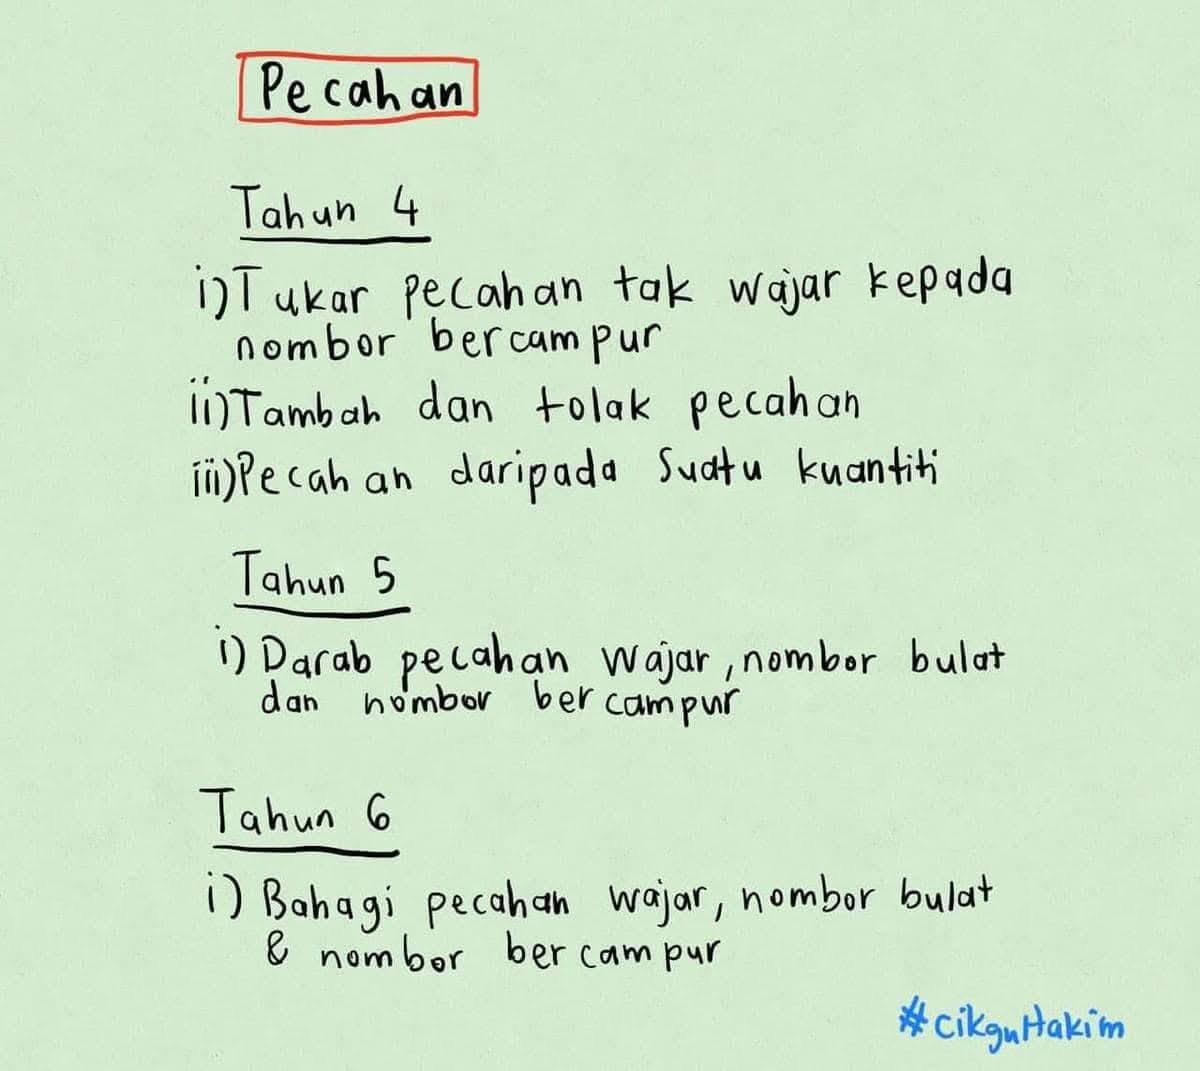 Pecahan
Tahun 4
i) Tukar pecahan tak wajar kepada
nombor bercampur
ii) Tambah dan tolak pecahan
iii) Pecahan daripada suatu kuantiti
Tahun 5
i) Darab pecahan wajar, nombor bulat
dan nombor bercampur
Tahun 6
i) Bahagi pecahan wajar, nombor bulat
& nombor bercampur
#cikguHakim